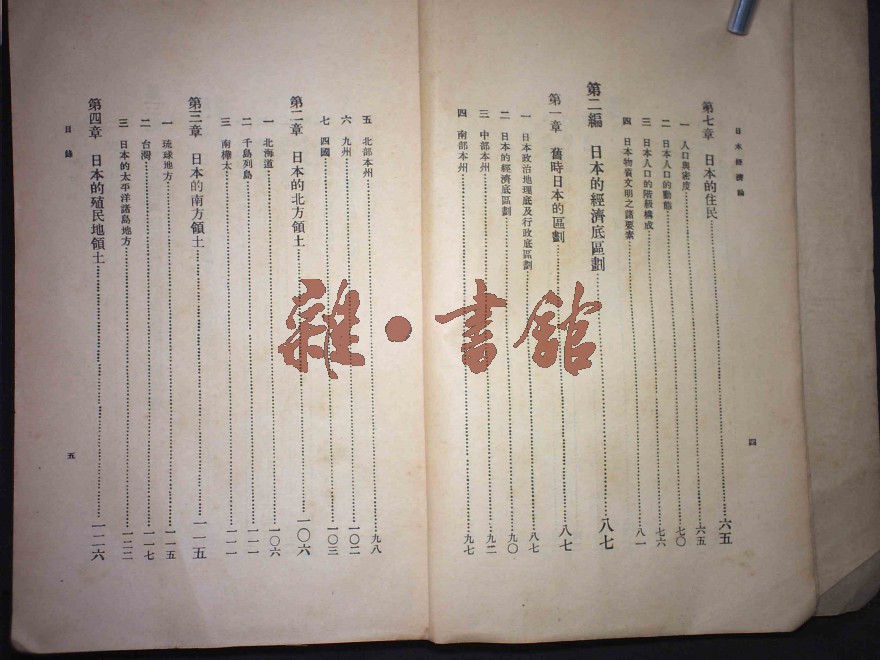 日本經濟論
第七章 日本的住民……六五
一 人口與密度……六五
二 日本人口的動態……七〇
三 日本人口的階級構成……七六
四 日本物質文明之諸要素……八一
第二編 日本的經濟底區劃……八七
第一章 舊時日本的區劃……八七
一 日本政治地理底及行政底區劃……八七
二 日本的經濟底區劃……九〇
三 中部本州……九二
四 南部本州……九七
四
五 北部本州……九八
六 九州……一〇二
七 四國……一〇三
第二章 日本的北方領土……一〇六
一 北海道……一〇六
二 千島列島……一一一
三 南樺太……一一一
第三章 日本的南方領土……一一五
一 琉球地方……一一五
二 台灣……一一七
三 日本的太平洋諸島地方……一二二
第四章 日本的殖民地領土……一二六
目錄
五
雜·書館